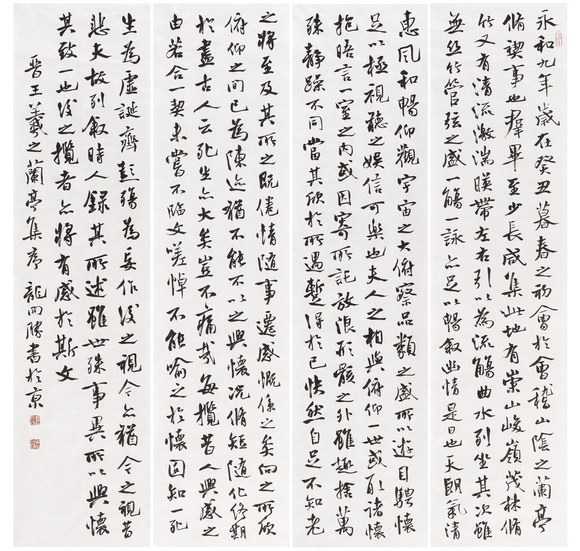 永和九年歲在癸丑暮春之初會於會稽山陰之蘭亭
脩禊事也羣畢至少長咸集此地有崇山峻嶺茂林脩
竹又有清流激湍暎帶左右引以為流觴曲水列坐其次雖
無絲竹管弦之盛一觴一詠亦足以暢敘幽情是日也天朗氣清
惠風和暢仰觀宇宙之大俯察品類之盛所以遊目騁懷
足以極視聽之娛信可樂也夫人之相與俯仰一世或取諸懷
抱晤言一室之內或因寄所託放浪形骸之外雖趣捨萬
殊靜躁不同當其欣於所遇暫得於己怏然自足不知老
之將至及其所之既倦情隨事遷感慨係之矣向之所欣
俯仰之間已為陳迹猶不能不以之興懷況脩短隨化終期
於盡古人云死生亦大矣豈不痛哉每攬昔人興感之
由若合一契未嘗不臨文嗟悼不能喻之於懷固知一死
生為虛誕齊彭殤為妄作後之視今亦猶今之視昔
悲夫故列敘時人錄其所述雖世殊事異所以興懷
其致一也後之攬者亦將有感於斯文
晉王羲之蘭亭集序 龍開勝書於京